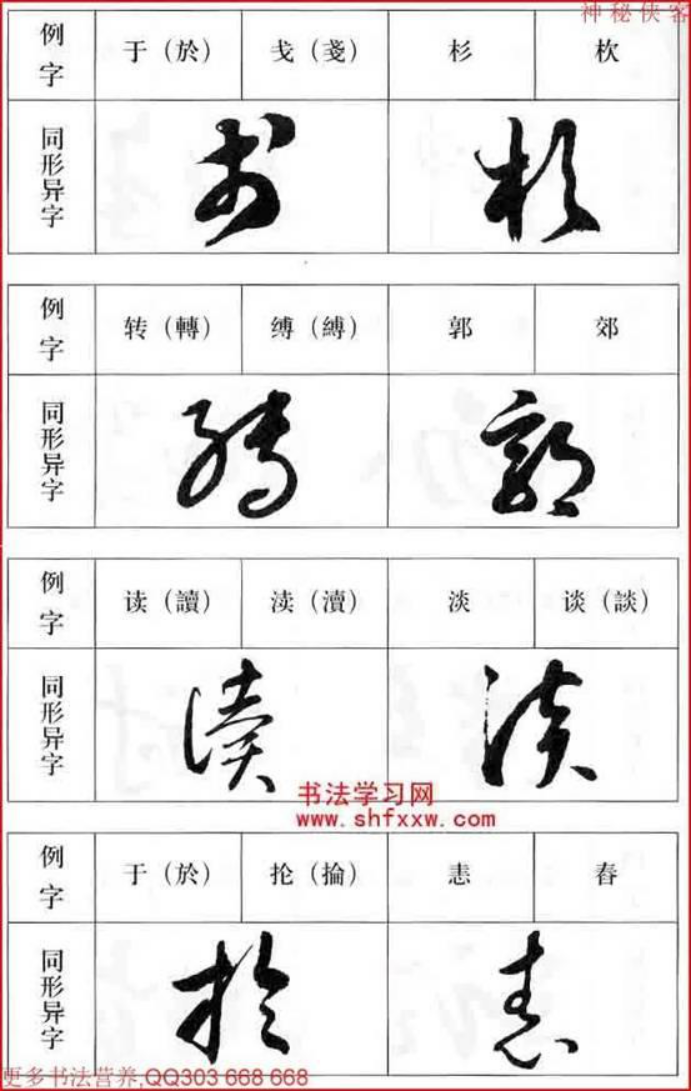 神秘侠客
例字 于（於） 戋（戔） 杉 杴
同形异字
例字 转（轉） 缚（縛） 郭 郊
同形异字
例字 读（讀） 渎（瀆） 淡 谈（談）
同形异字
书法学习网
www.shfxxw.com
例字 于（於） 抡（掄） 恚
同形异字
更多书法营养,QQ303 668 668